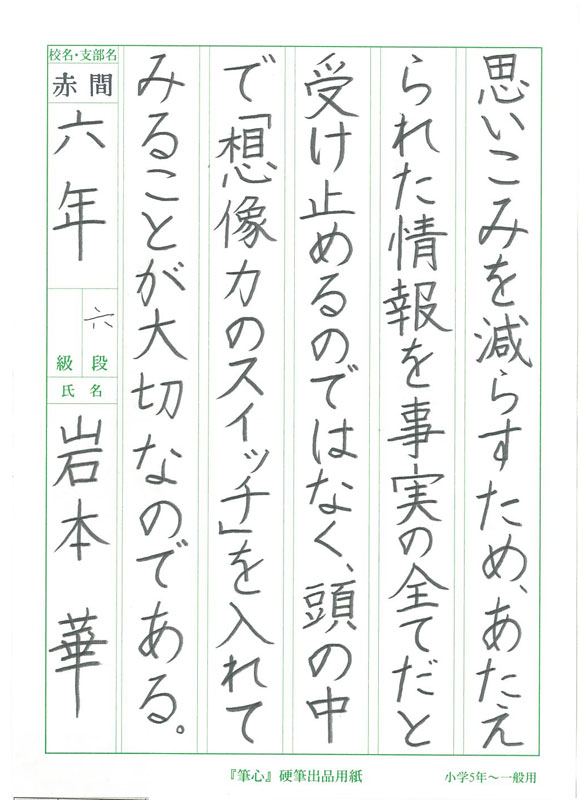 思いこみを減らすため、あたえ
られた情報を事実の全てだと
受け止めるのではなく、頭の中
で「想像力のスイッチ」を入れて
みることが大切なのである。
校名・支部名
赤間
六年
六
段
級
氏名
岩本 華
『筆心』硬筆出品用紙
小学5年〜一般用